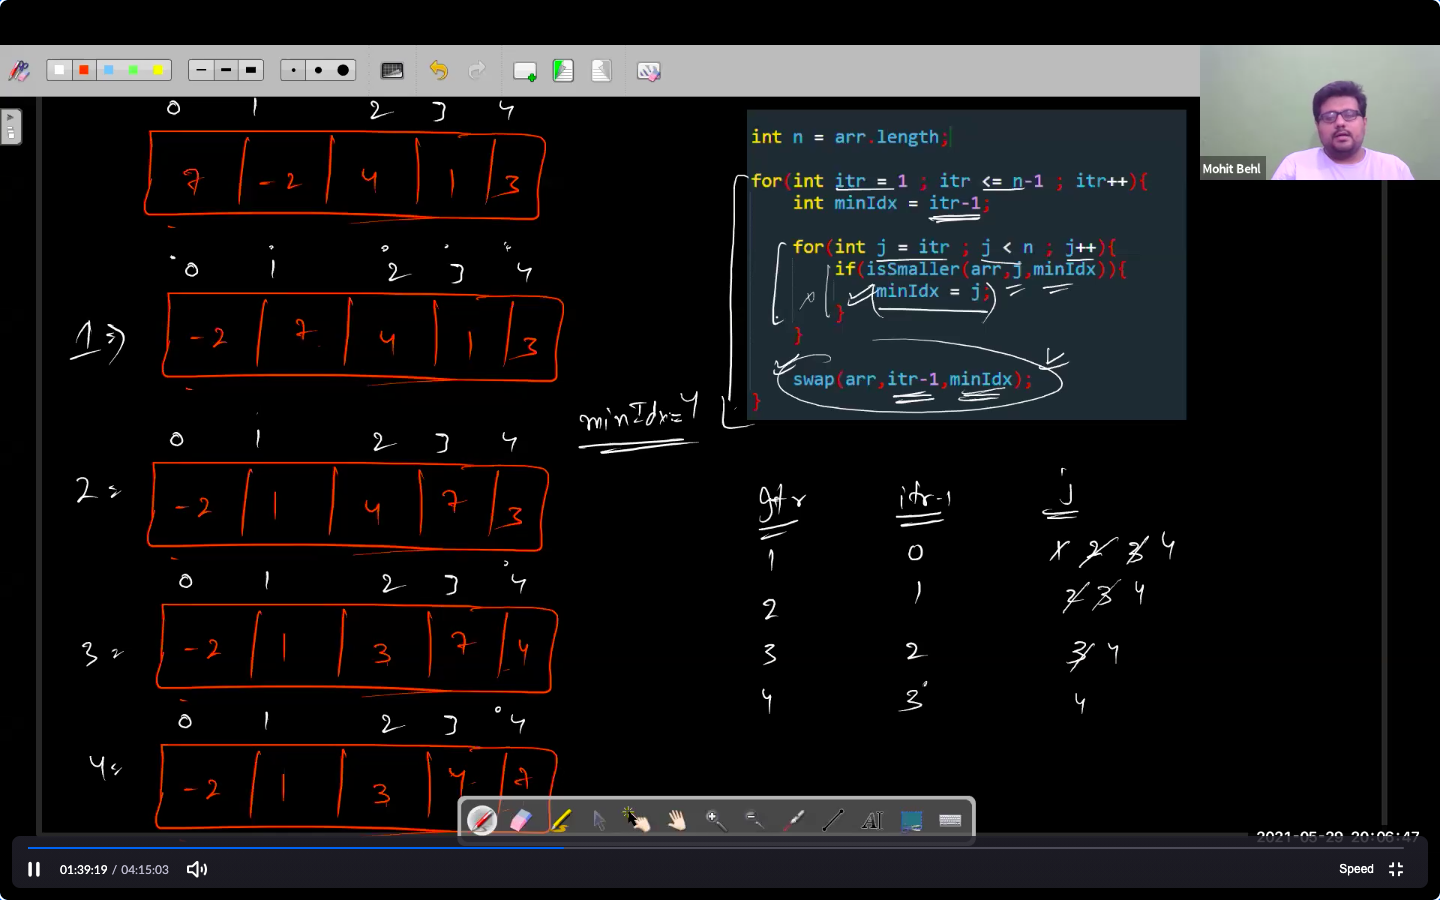 Mohit Behl
0 1 2 3 4
7 -2 4 1 3
0 1 2 3 4
1 ⇒ -2 7 4 1 3
0 1 2 3 4
2 = -2 1 4 7 3
0 1 2 3 4
3 = -2 1 3 7 4
0 1 2 3 4
4 = -2 1 3 4 7
int n = arr.length;
for(int itr = 1 ; itr <= n-1 ; itr++){
int minIdx = itr-1;
for(int j = itr ; j < n ; j++){
if(isSmaller(arr,j,minIdx)){
minIdx = j;
}
}
swap(arr,itr-1,minIdx);
}
minIdx=4
itr itr-1 j
1 0 1 2 3 4
2 1 2 3 4
3 2 3 4
4 3 4
AI
2021-05-29 20:06:47
01:39:19 / 04:15:03
Speed